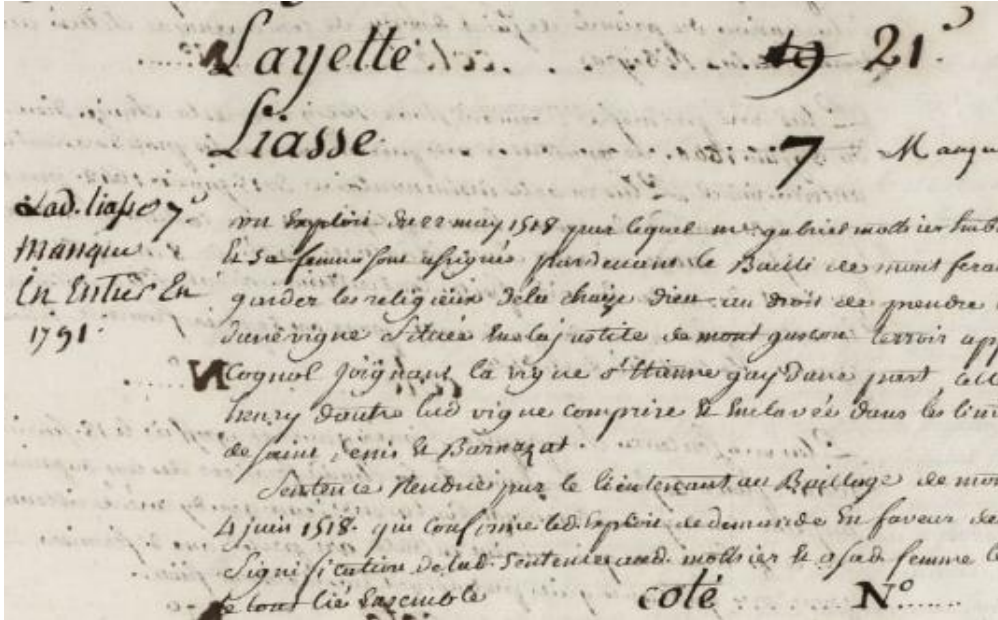 Layette . . . . . . 19 21.
Liasse. 7 Manqu
Lad. liasse 7e
manque
En Entier En
1791.
un Exploit du 2 may 1518 par lequel me. gabriel mottier
& sa femme sont assignés pardevant le Bailli de mont fera
garder les religieux de la chaise dieu au droit de prendre
d'une vigne située en la justice de mont gascon terroir app
Cognol joignant la vigne d'Etienne gay d'une part celle
henry d'autre lad vigne comprise & Enclavée dans les limi
de saint Denis & Barnazat.
Sentence Rendue par le lieutenant au Bailliage de mon
4 juin 1518. qui confirme led. Exploit de demande En faveur de
Signification de lad. Sentence aud. mottier & a sad. femme
le tout lié Ensemble coté No......